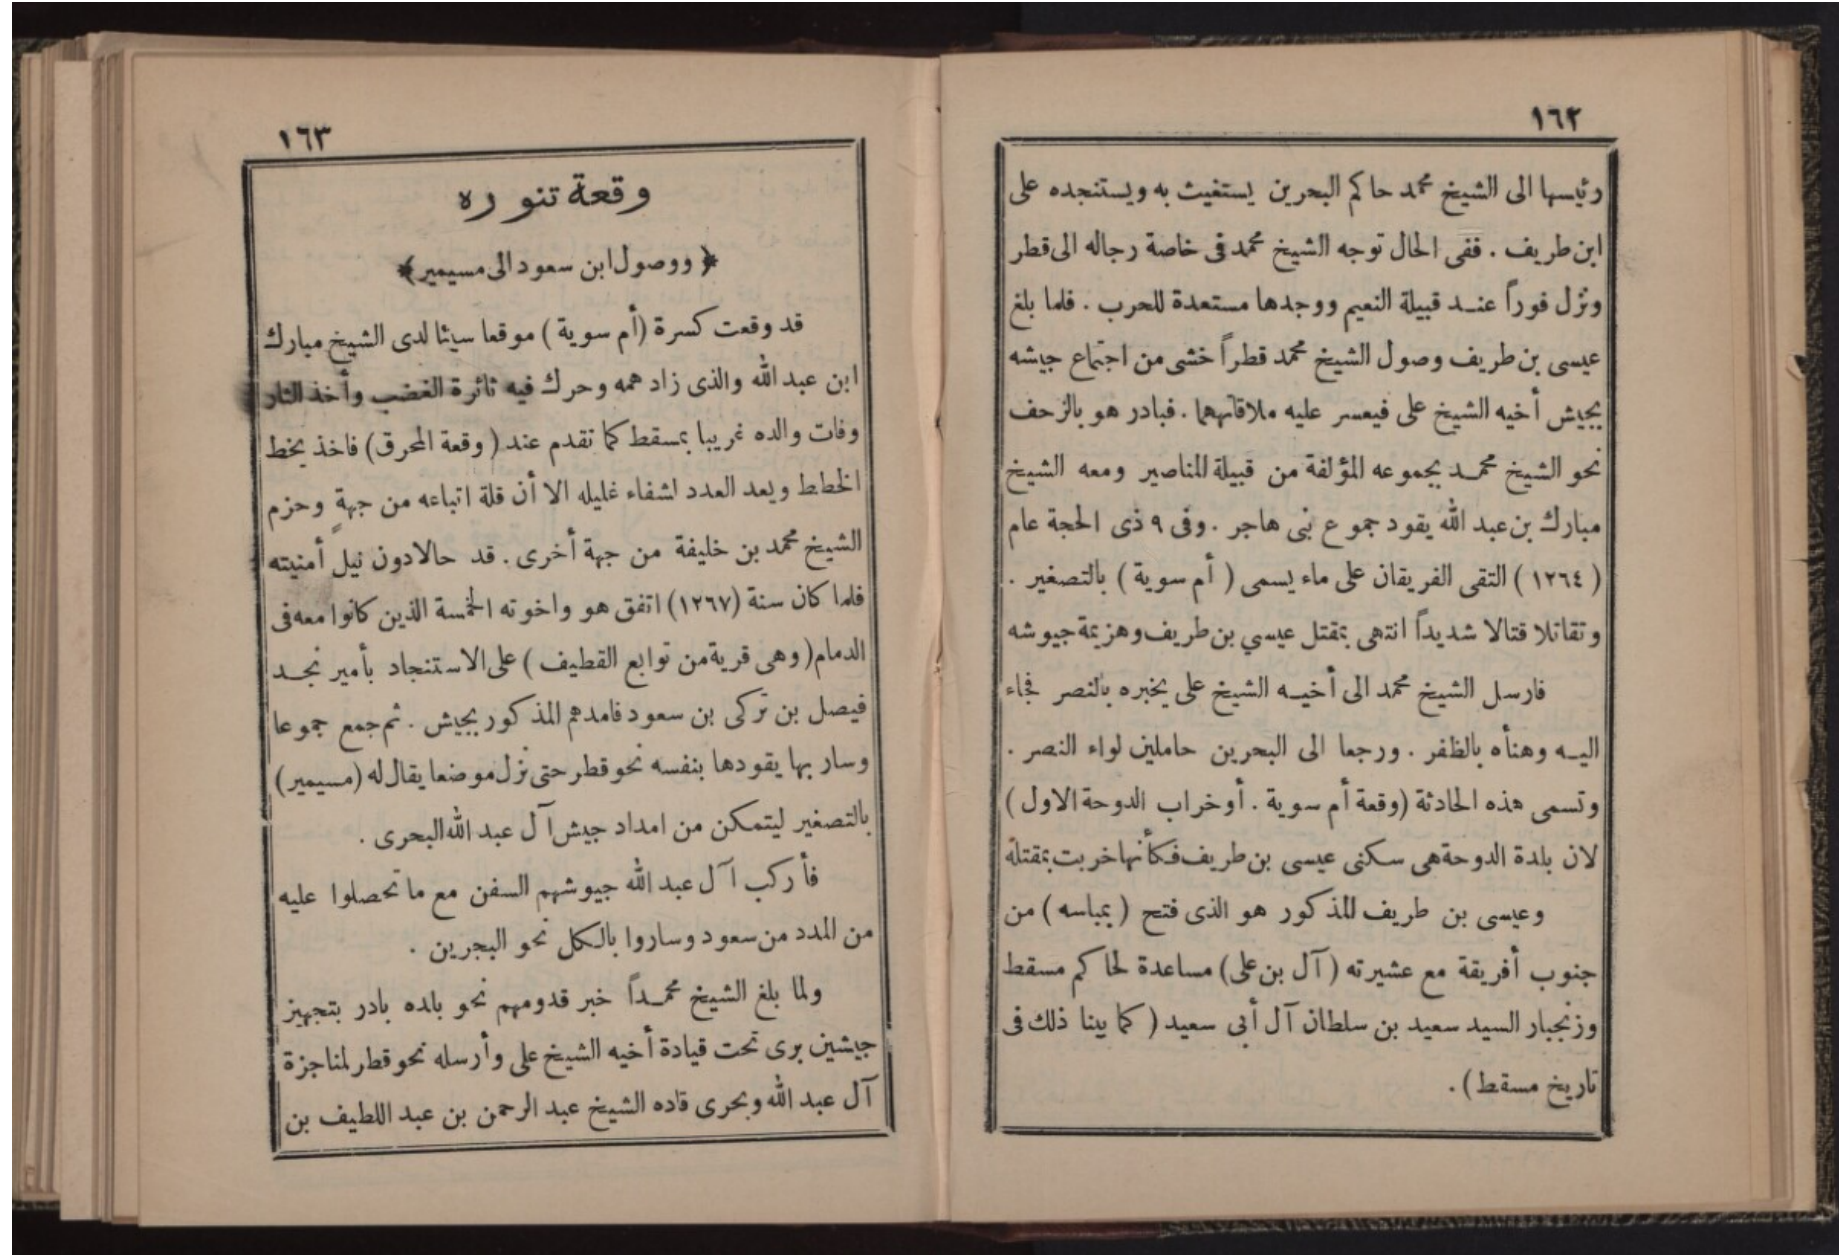 ١٦٢
رئيسها الى الشيخ محمد حاكم البحرين يستغيث به ويستنجده على
ابن طريف . ففى الحال توجه الشيخ محمد فى خاصة رجاله الى قطر
ونزل فوراً عنـد قبيلة النعيم ووجدها مستعدة للحرب . فلما بلغ
عيسى بن طريف وصول الشيخ محمد قطراً خشى من اجتماع جيشه
بجيش أخيه الشيخ على فيعسر عليه ملاقاتهما . فبادر هو بالزحف
نحو الشيخ محمـد بجموعه المؤلفة من قبيلة المناصير ومعه الشيخ
مبارك بن عبد الله يقود جموع بنى هاجر . وفى ٩ ذى الحجة عام
( ١٢٦٤ ) التقى الفريقان على ماء يسمى ( أم سوية ) بالتصغير .
وتقاتلا قتالا شديداً انتهى بمقتل عيسي بن طريف وهزيمة جيوشه
فارسل الشيخ محمد الى أخيـه الشيخ على يخبره بالنصر فجاء
اليـه وهنأه بالظفر . ورجعا الى البحرين حاملين لواء النصر .
وتسمى هذه الحادثة (وقعة أم سوية . أو خراب الدوحة الاول )
لان بلدة الدوحة هى سكنى عيسى بن طريف فكأنها خربت بمقتلة
وعيسى بن طريف المذكور هو الذى فتح ( بمباسه ) من
جنوب أفريقة مع عشيرته ( آل بن على) مساعدة لحاكم مسقط
وزنجبار السيد سعيد بن سلطان آل أبى سعيد ( كما بينا ذلك فى
تاريخ مسقط ) .
١٦٣
وقعة تنوره
﴿ ووصول ابن سعود الى مسيمير ﴾
قد وقعت كسرة (أم سوية ) موقعا سيئا لدى الشيخ مبارك
ابن عبد الله والذى زاد همه وحرك فيه ثائرة الغضب وأخذ الثار
وفات والده غريبا بمسقط كما تقدم عند ( وقعة المحرق ) فاخذ يخط
الخطط ويعد العدد لشفاء غليله الا أن قلة اتباعه من جهةٍ وحزم
الشيخ محمد بن خليفة من جهة أخرى . قد حالا دون نيل أمنيته
فلما كان سنة (١٢٦٧) اتفق هو واخوته الخمسة الذين كانوا معه فى
الدمام( وهى قرية من توابع القطيف ) على الاستنجاد بأمير نجـد
فيصل بن تركى بن سعود فامدهم المذكور بجيش . ثم جمع جموعا
وسار بها يقودها بنفسه نحو قطر حتى نزل موضعا يقال له (مسيمير)
بالتصغير ليتمكن من امداد جيش آل عبد الله البحرى .
فأركب آل عبد الله جيوشهم السفن مع ما تحصلوا عليه
من المدد من سعود وساروا بالكل نحو البحرين .
ولما بلغ الشيخ محمـداً خبر قدومهم نحو بلده بادر بتجهيز
جيشين برى تحت قيادة أخيه الشيخ على وأرسله نحو قطر لمناجزة
آل عبد الله وبحرى قاده الشيخ عبد الرحمن بن عبد اللطيف بن